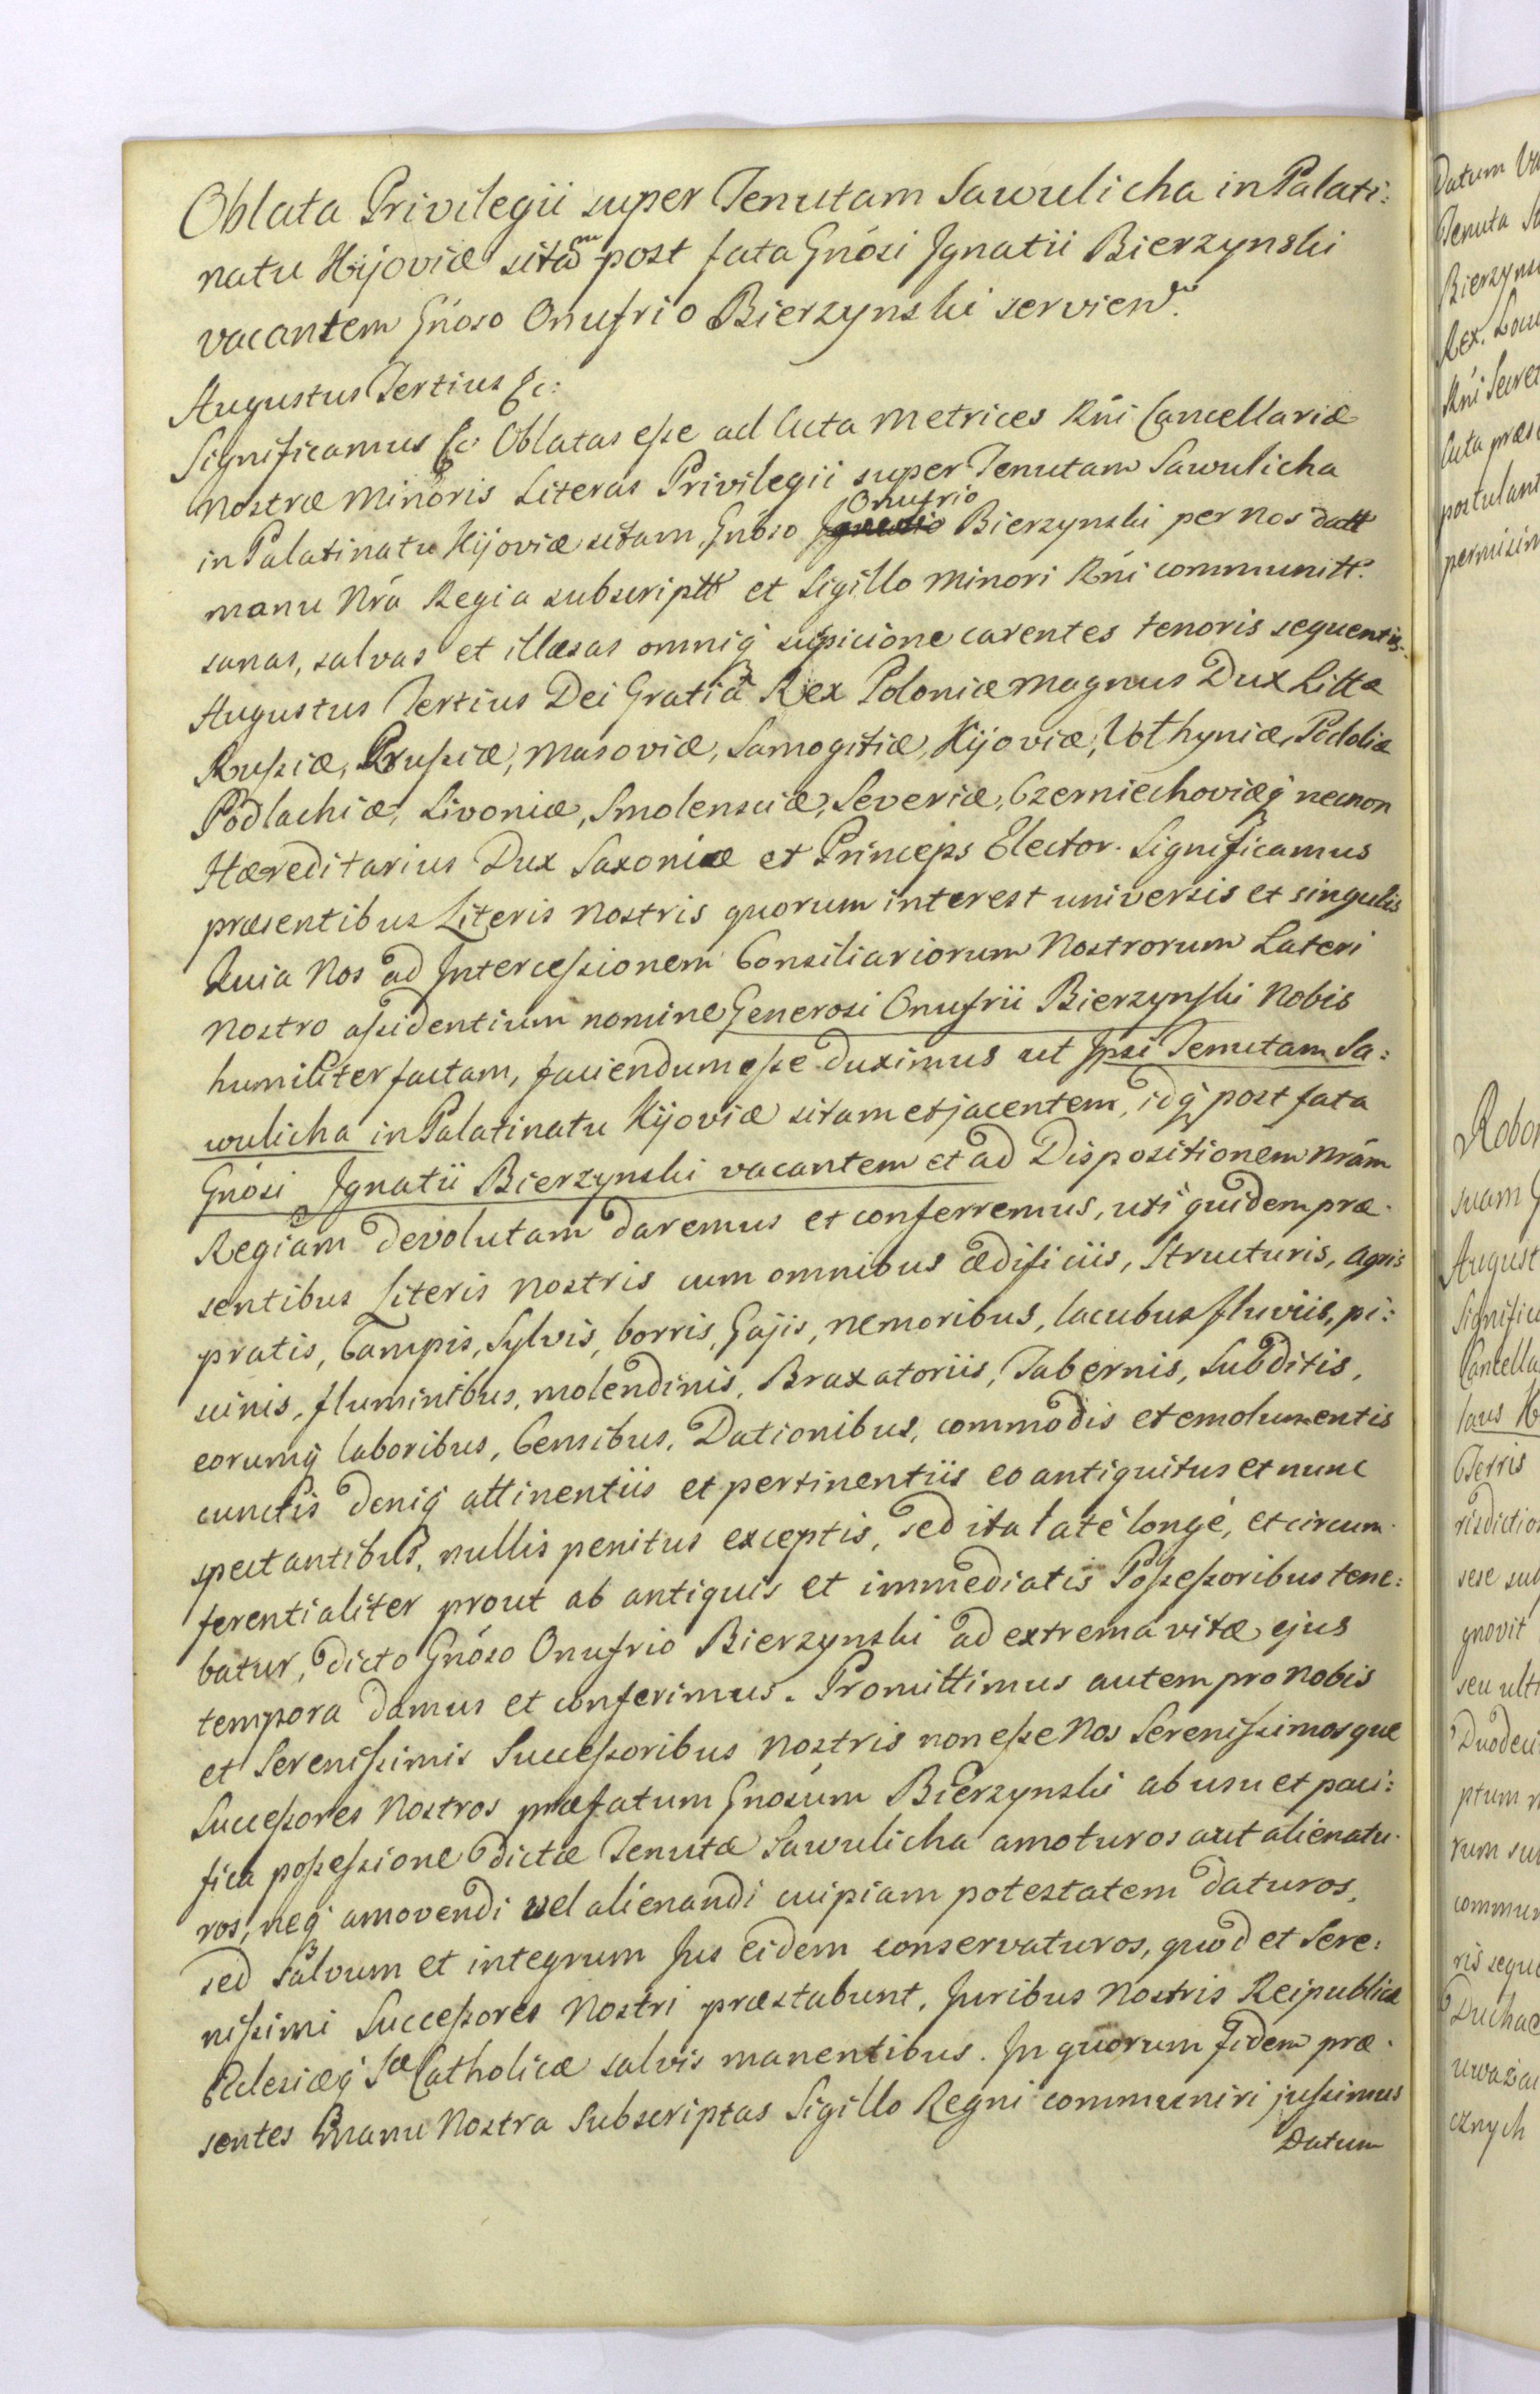 Oblata Privilegii super Tenutam Sawulicha in Palati:
natu Kijoviæ sitam post fata Gnősi Ignatii Bierzynski
vacantem Gnőso Onufrio Bierzynski serviend.
Augustus Tertius &c:
Significamus &c Oblatas esse ad Acta Metrices Rńi Cancellariæ
Nostræ Minoris Literas Privilegii super Tenutam Sawulicha
in Palatinatu Kijoviæ sitam, Gnőso Onufrio Bierzynski per nos datt
manu Nrá Regia subscriptt et Sigillo minori Rńi communitt.
sanas, salvas et illæsas omniq suspicione carentes tenoris sequentis.
Augustus Tertius Dei Gratiâ Rex Poloniæ Magnus Dux Littæ
Russiæ, Prussiæ, Masoviæ, Samogitiæ, Kijoviæ, Volhyniæ, Podoliæ
Podlachiæ, Livoniæ, Smolensciæ, Severiæ, Czerniechoviæq necnon
Hæreditarius Dux Saxoniæ et Princeps Elector. Significamus
præsentibus Literis Nostris quorum interest universis et singulis
Quia Nos ad Intercessionem Consiliariorum Nostrorum Lateri
Nostro assidentium nomine Generosi Onufrii Bierzynski Nobis
humiliter factam, faciendum esse duximus ut Ipsi Tenutam Sa:
wulicha in Palatinatu Kijoviæ sitam et jacentem, idq post fata
Gnősi Ignatii Bierzynski vacantem et ad Dispositionem Nrám
Regiam devolutam daremus et conferremus, uti quidem præ-
sentibus Literis Nostris cum omnibus ædificiis, Structuris, agris
pratis, Campis, Sylvis, borris, Gajis, nemoribus, lacubus fluviis, pi:
scinis, fluminibus, molendinis, Braxatoriis, Tabernis, Subditis,
eorumq laboribus, Censibus, Dationibus, commodis et emolumentis
cunctis deniq attinentiis et pertinentiis eo antiquitus et nunc
spectantibus, nullis penitus exceptis, sed ita laté longé, et circum-
ferentialiter prout ab antiquis et immediatis Possessoribus tene:
batur, dicto Gnőso Onufrio Bierzynski ad extrema vitæ ejus
tempora damus et conferimus. Promittimus autem pro Nobis
et Serenissimis Successoribus Nostris non esse Nos Serenissimosque
Successores Nostros præfatum Gnősum Bierzynski ab usu et paci:
fica possessione dictæ Tenutæ Sawulicha amoturos aut alienatu-
ros, neq amovendi vel alienandi cuipiam potestatem daturos,
sed salvum et integrum Jus eidem conservaturos, quod et Sere:
nissimi Successores Nostri præstabunt, Juribus Nostris Reipublicæ
Eclesiæq Sæ Catholicæ salvis manentibus. In quorum fidem præ-
sentes manu Nostra Subscriptas Sigillo Regni communiri jussimus
Datum